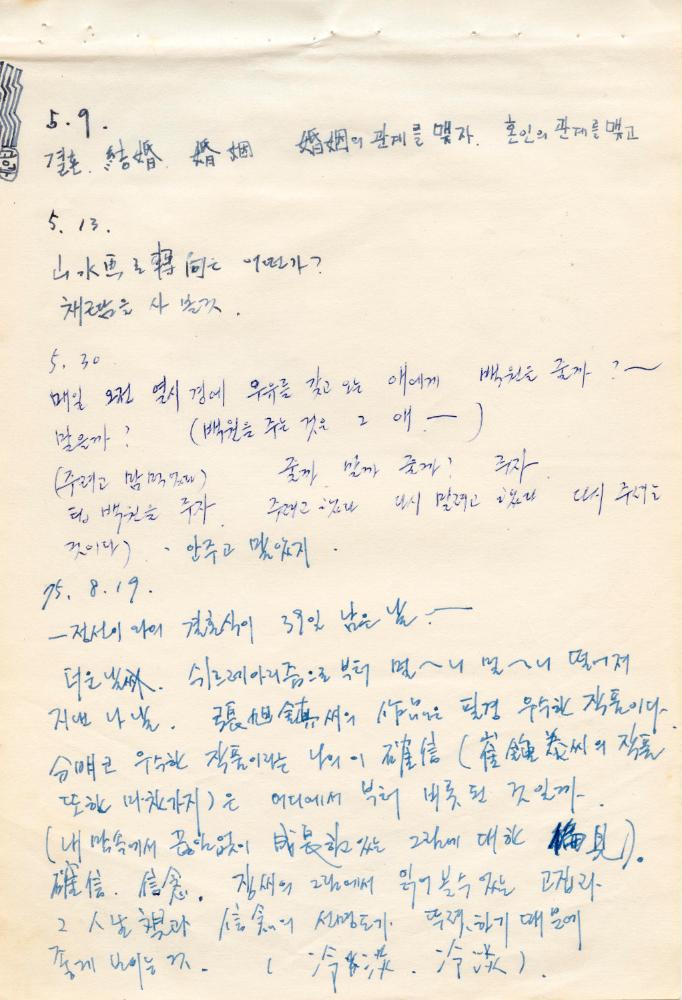 5. 9.
결혼. 結婚. 婚姻 婚姻의 관계를 맺자. 혼인의 관계를 맺고
5. 13.
山水画로 轉向은 어떤가?
채료를 사 볼것.
5. 30
매일 오전 열시경에 우유를 갖고 오는 애에게 백원을 줄까?~
말을까? (백원을 주는 것은 그 애.—)
(주려고 맘먹었다) 줄까 말까 줄까? 주자
백원을 주자 주려고 했다 다시 말려고 했다 다시 주려는
것이다) · 안주고 말았지.
75. 8. 19.
— 나의 결혼식이 39일 남은 날.—
더운 날씨. 쉬르레아리즘으로부터 멀~니 멀~니 떨어져
지낸 나날. 張旭鎮씨의 作品은 필경 우수한 작품이다.
分明코 우수한 작품이라는 나의 이 確信 (崔鍾泰씨의 작품
또한 마찬가지)은 어디에서부터 비롯된 것일까.
(내 맘속에서 끊임없이 成長하고 있는 그림에 대한 偏見).
確信. 信念. 장씨의 그림에서 읽어볼수 있는 고집과
그 人生 信念의 선명도가 뚜렷하기 때문에
좋게 보이는 것. (冷淡. 冷淡).